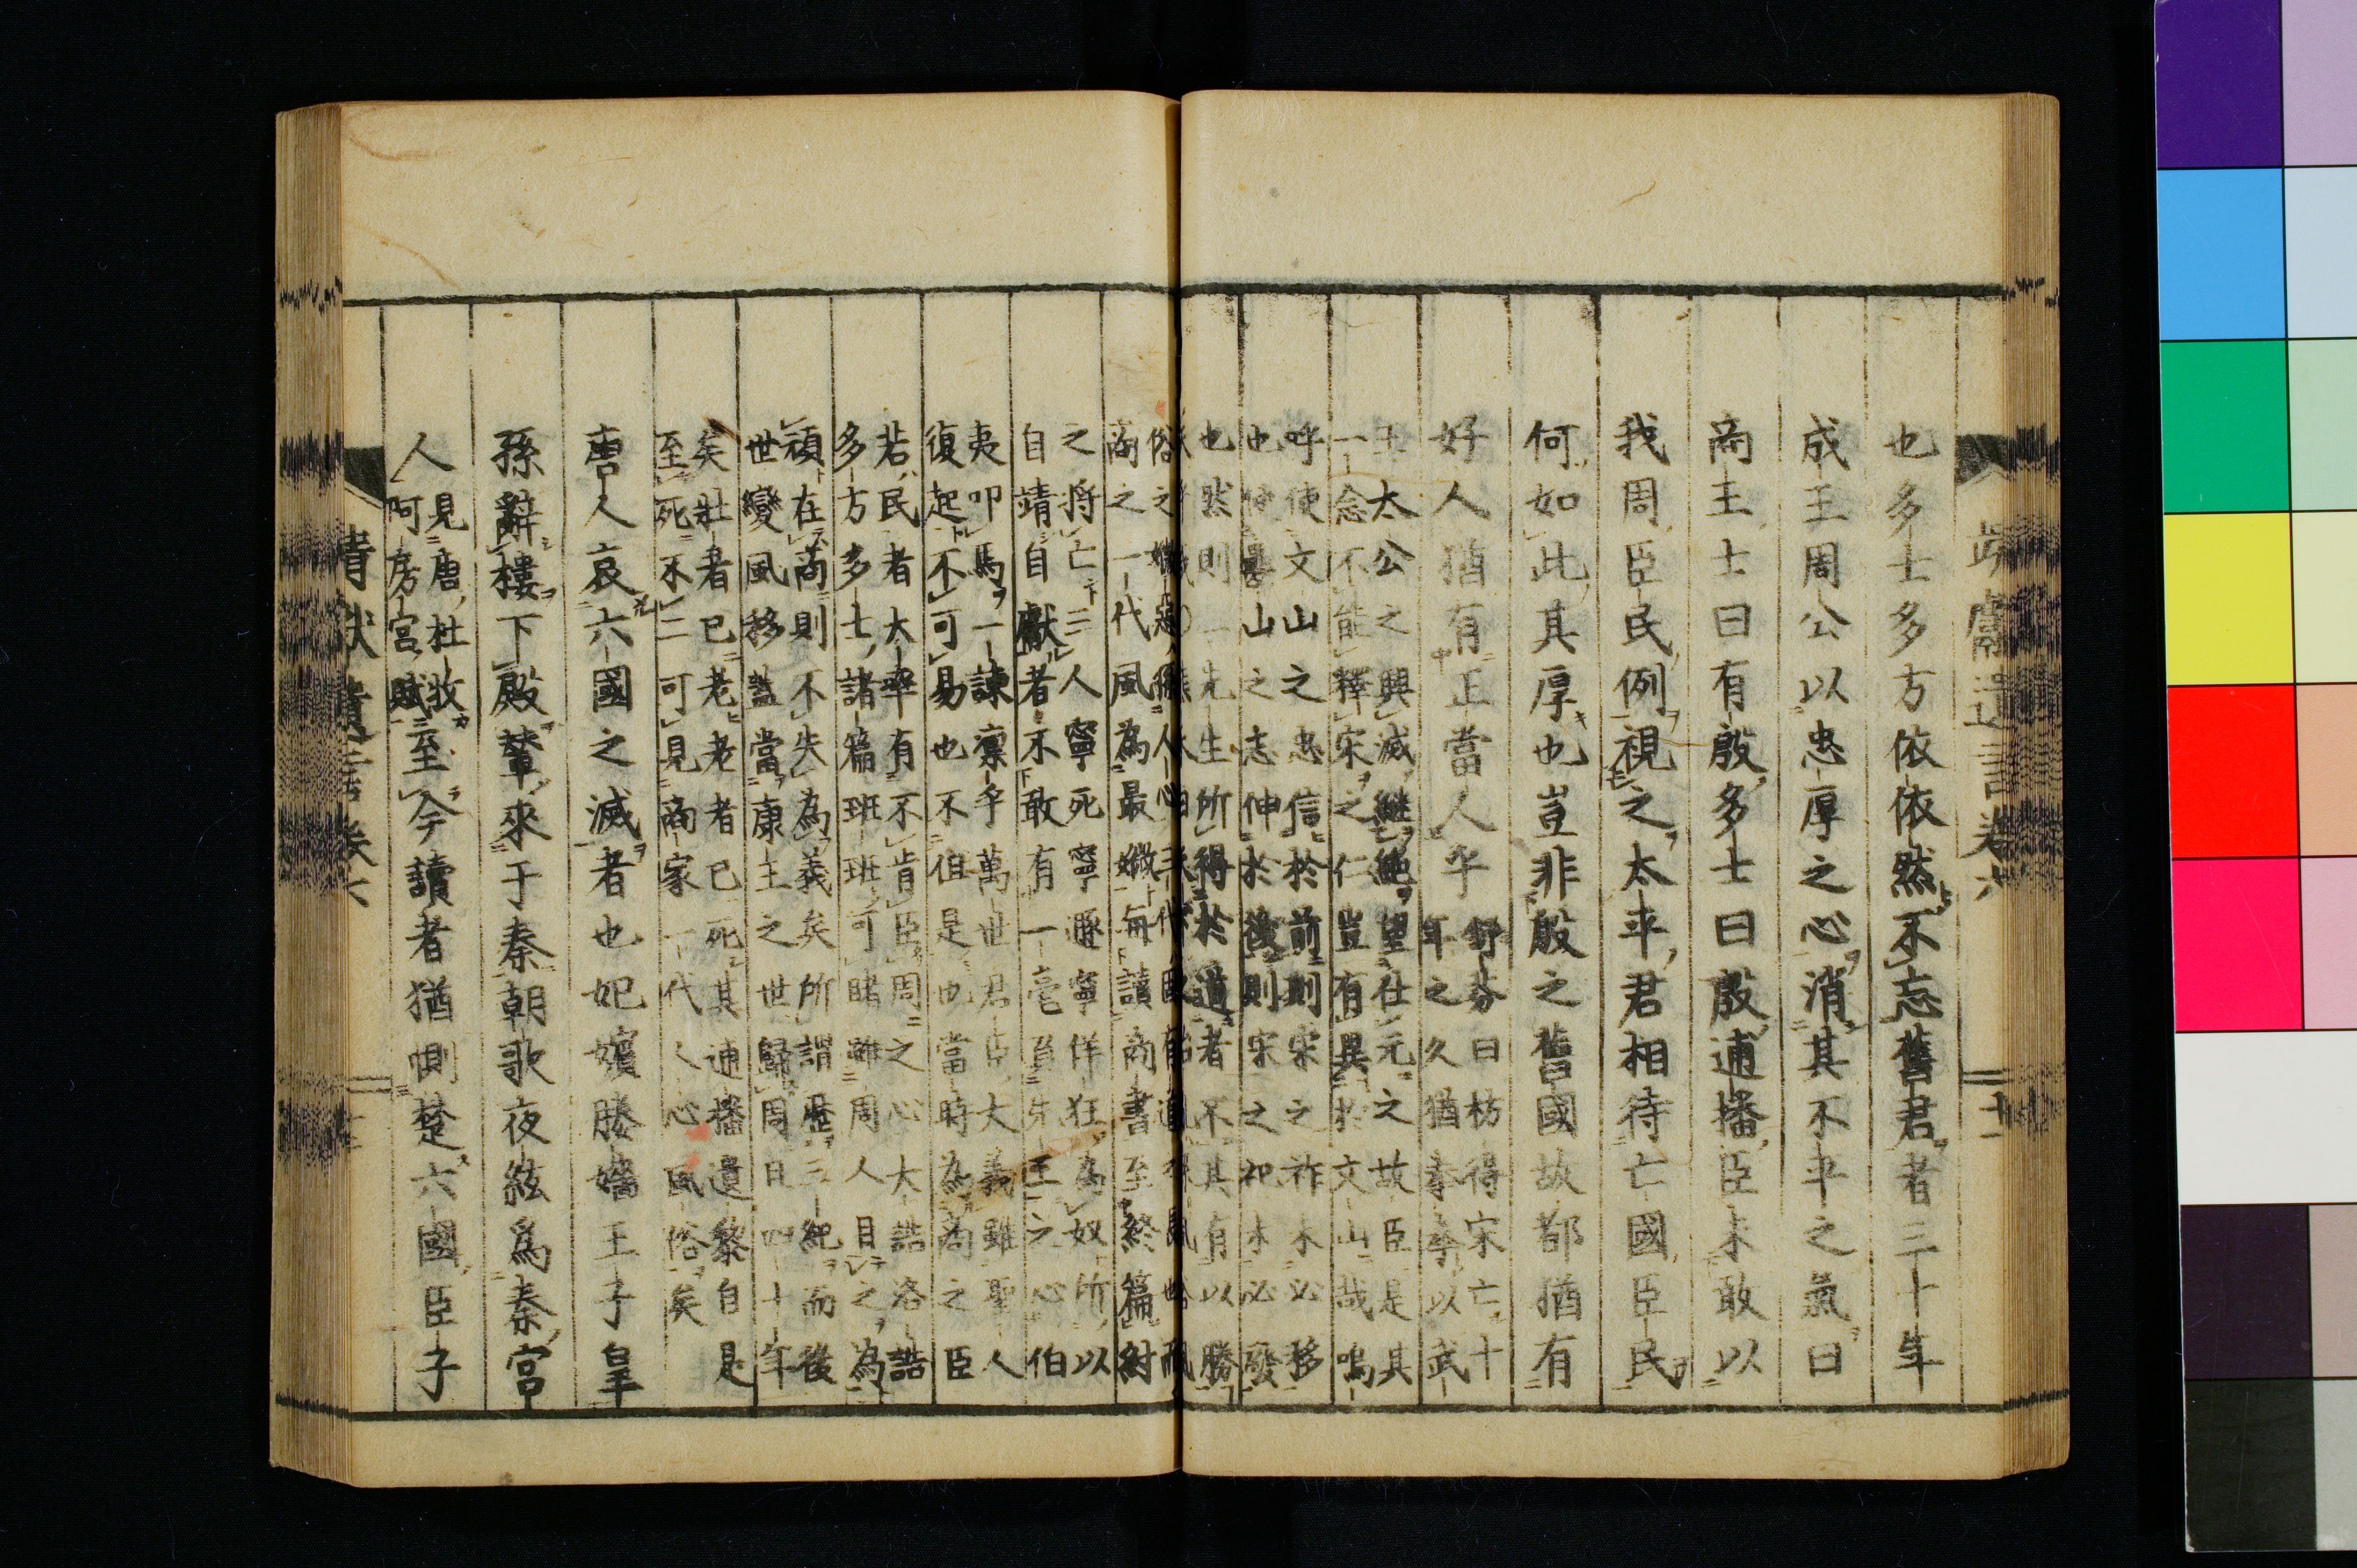 也多士多方依依然不忘舊君者三十年
成王周公以忠厚之心消其不平之氣曰
商王士曰有殷多士曰殷逋播臣未敢以
我周臣民例視之太平君相待亡國臣民
何如此其厚也豈非殷之舊國故都猶有
好人猶有正當人乎
舒芬曰枋得宋亡十
年之久猶拳拳以武
王太公之興滅繼絕望仕元之故臣是其
一念不能釋宋之仁豈有異於文山哉嗚
呼使文山之忠信於前則宋之祚未必移
也疊山之志伸於後則宋之祀未必發
也然則二先生所得於道者不其有以勝
商之一代風為最媺每讀商書至終篇紂
之將亡三人寧死寧遯寧佯狂為奴所以
自靖自獻者不敢有一毫負先王之心伯
夷叩馬一諫凛乎萬世君臣大義雖聖人
復起不可易也不但是也當時為商之臣
若民者太率有不肯臣周之心大誥洛誥
多方多士諸篇班班可睹雖周人目之為
頑在商則不失為義矣所謂歷三紀而後
世變風移蓋當康王之世歸周日四十年
矣壯者已老老者已死其逋播遺黎自是
至死不二可見商家一代人心風俗矣
唐人哀六國之滅者也妃嬪媵嬙王子皇
孫辭樓下殿輦來于秦朝歌夜絃爲秦宮
人
見唐杜牧
阿房宮賦
至今讀者猶惻楚六國臣子